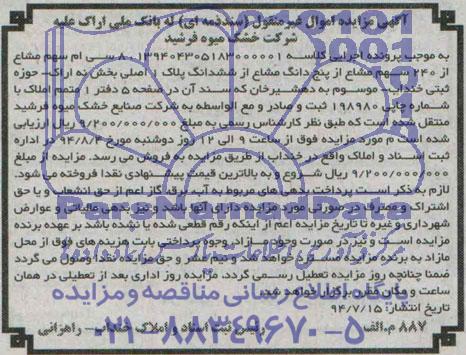 آگهی مزایده اموال غیر منقول (سند ذمه ای) له بانک ملی اراک علیه
شرکت خشک میوه فرشید
به موجب پرونده اجرایی کلاسه ۱۳۹۴۰۴۳۰۵۱۸۳۰۰۰۰۰۱ سی ام سهم مشاع
از ۲۴۰ سهم مشاع از پنج دانگ مشاع از ششدانگ پلاک ۱ اصلی بخش نه اراک- حوزه
ثبتی خنداب- موسوم به دهشیرخان که سند آن در صفحه ۵ دفتر ۱ متمم املاک با
شماره چاپی ۱۹۸۹۸۰ ثبت و صادر و مع الواسطه به شرکت صنایع خشک میوه فرشید
منتقل شده است که طبق نظر کارشناس رسمی به مبلغ ۹/۲۰۰/۰۰۰/۰۰۰ ریال ارزیابی
شده است م مورد مزایده فوق از ساعت ۹ الی ۱۲ روز دوشنبه مورخ ۹۴/۸/۴ در اداره
ثبت اسناد و املاک واقع در خنداب از طریق مزایده به فروش می رسد. مزایده از مبلغ
۹/۲۰۰/۰۰۰/۰۰۰ ریال شروع و به بالاترین قیمت پیشنهادی نقدا فروخته می شود.
لازم به ذکر است پرداخت بدهی های مربوط به آب، برق، گاز اعم از حق انشعاب و یا حق
اشتراک و مصرف در صورتی مورد مزایده دارای آنها باشد و نیز بدهی مالیاتی و عوارض
شهرداری و غیره تا تاریخ مزایده اعم از اینکه رقم قطعی شده یا نشده باشد بر عهده برنده
مزایده است و نیز در صورت وجود مازاد، وجوه پرداختی بابت هزینه های فوق از محل
مازاد به برنده مزایده مسترد خواهد شد و نیم عشر و حق مزایده نقدا وصول می گردد
ضمنا چنانچه روز مزایده تعطیل رسمی گردد، مزایده روز اداری بعد از تعطیلی در همان
ساعت و مکان مقرر برگزار خواهد شد.
تاریخ انتشار: ۹۴/۷/۱۵
۸۸۷ م.الف رئیس ثبت اسناد و املاک خنداب- راهزانی
ParsNamadData
پایگاه اطلاع رسانی مناقصه و مزایده
۰۲۱-۸۸۳۴۹۶۷۰-۵